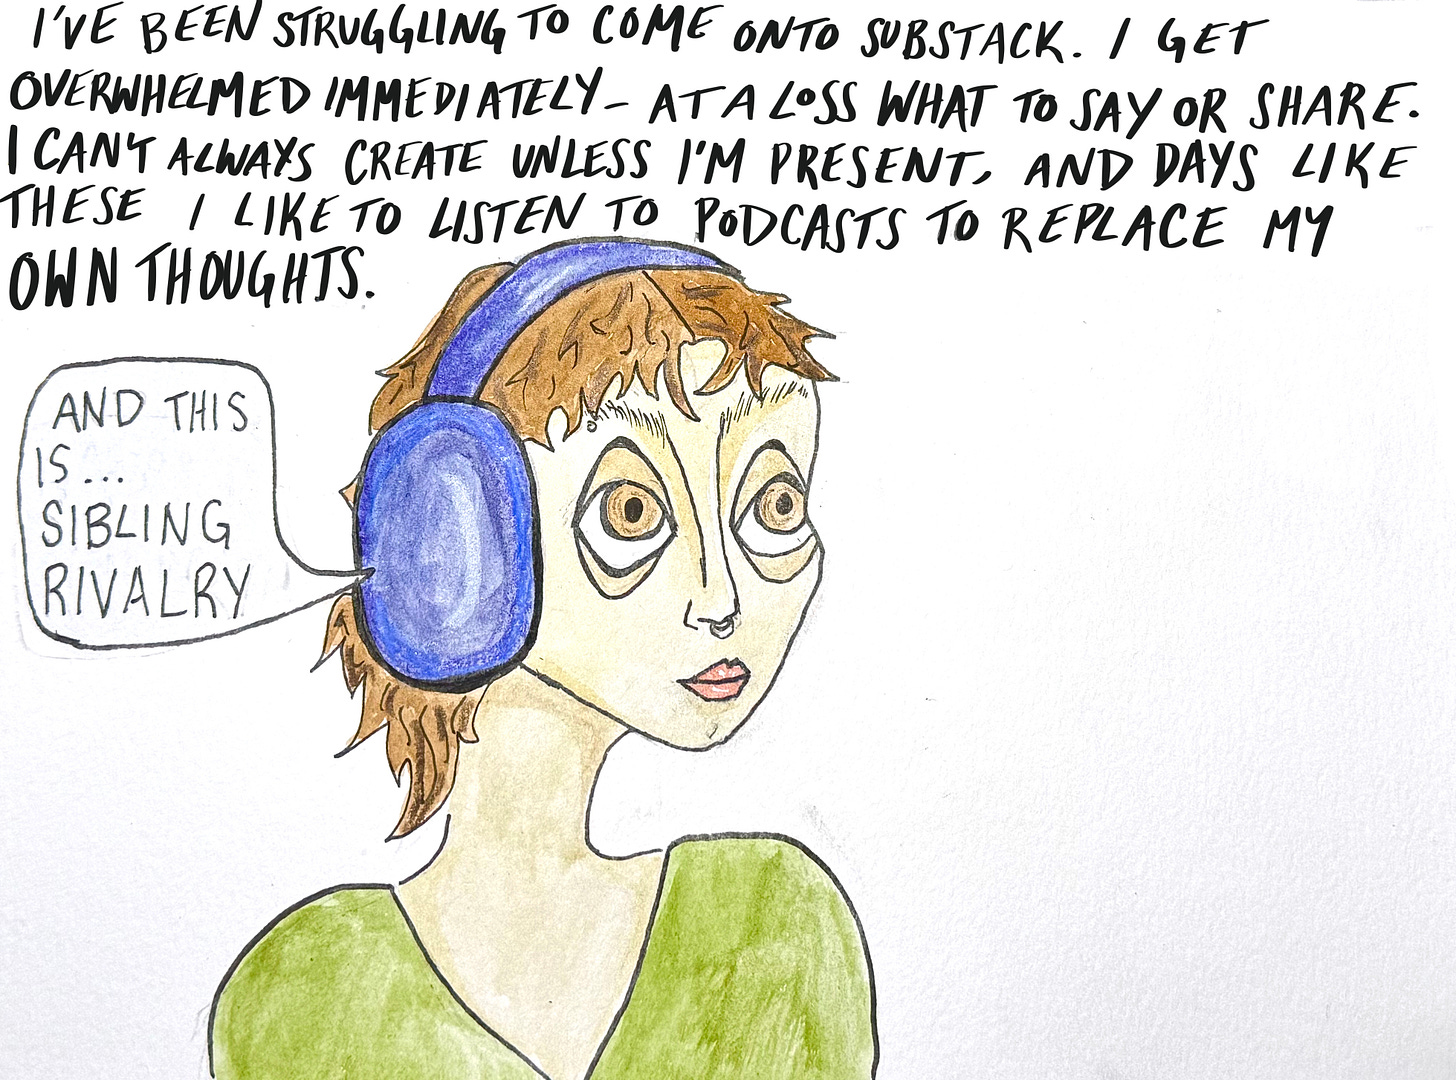 I'VE BEEN STRUGGLING TO COME ONTO SUBSTACK. I GET
OVERWHELMED IMMEDIATELY - AT A LOSS WHAT TO SAY OR SHARE.
I CAN'T ALWAYS CREATE UNLESS I'M PRESENT, AND DAYS LIKE
THESE I LIKE TO LISTEN TO PODCASTS TO REPLACE MY
OWN THOUGHTS.
AND THIS
IS...
SIBLING
RIVALRY